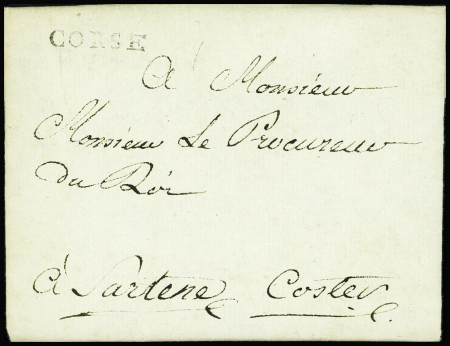 CORSE
A Monsieur
Monsieur Le Procureur
du Roi
à Sartene Coster